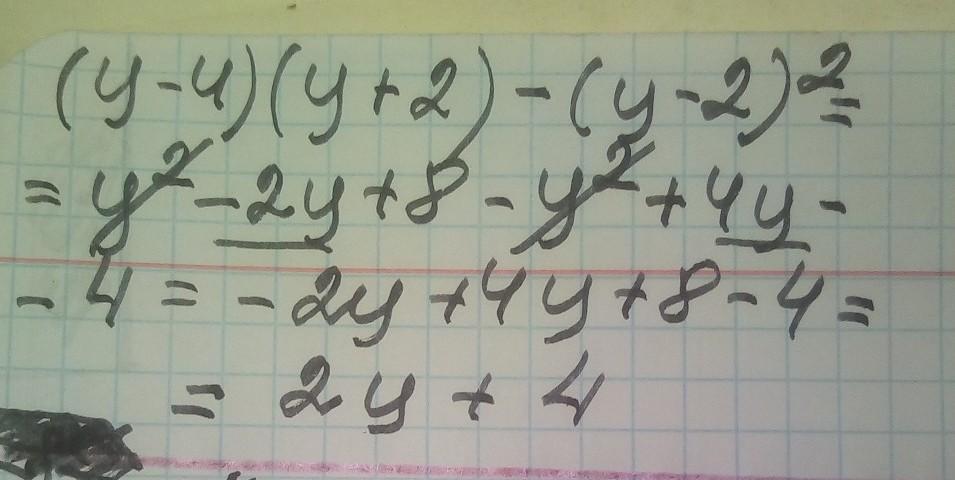 (y-4)(y+2)-(y-2)²=
=y²-2y+8-y²+4y-
-4=-2y+4y+8-4=
=2y+4